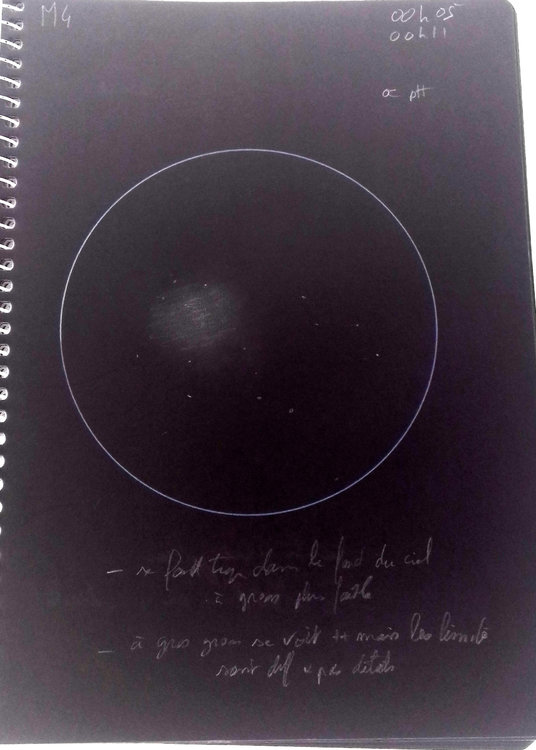 M4
00h05
00h11
- se fond trop dans le fond du ciel
à gross plus faible
- à gros gross se voit ++ mais les limites
sont diff pas détails